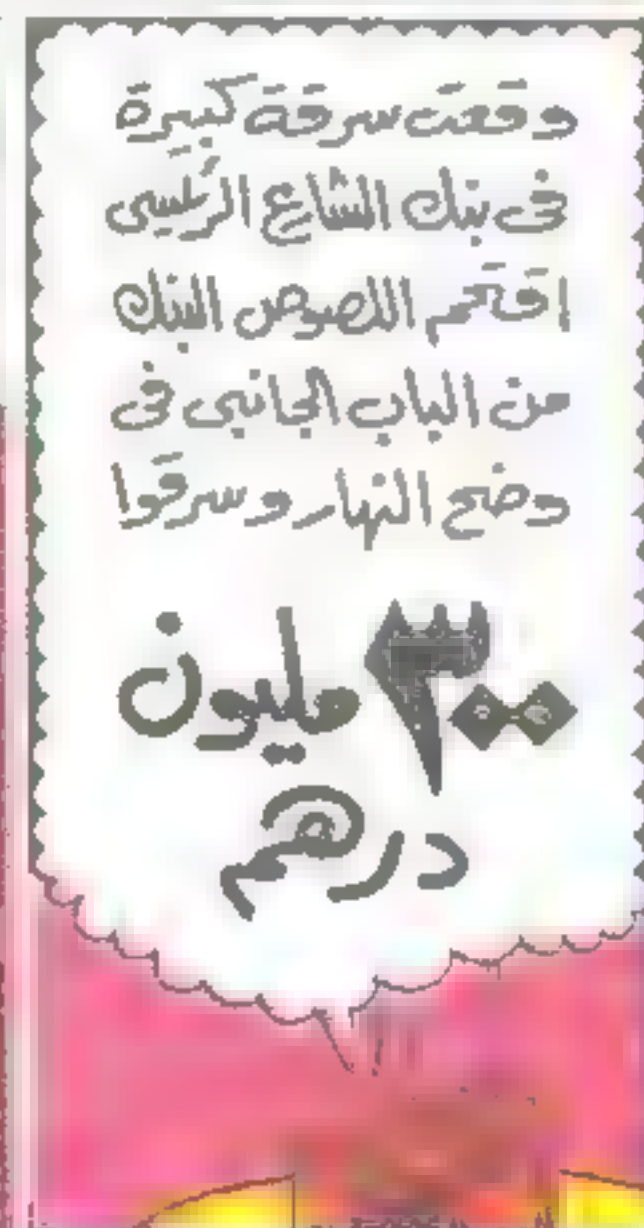 وقعت سرقة كبيرة
فى بنك الشارع الرئيسى
اقتحم اللصوص البنك
من الباب الجانبى فى
وضح النهار وسرقوا
٣٠٠ مليون
درهم